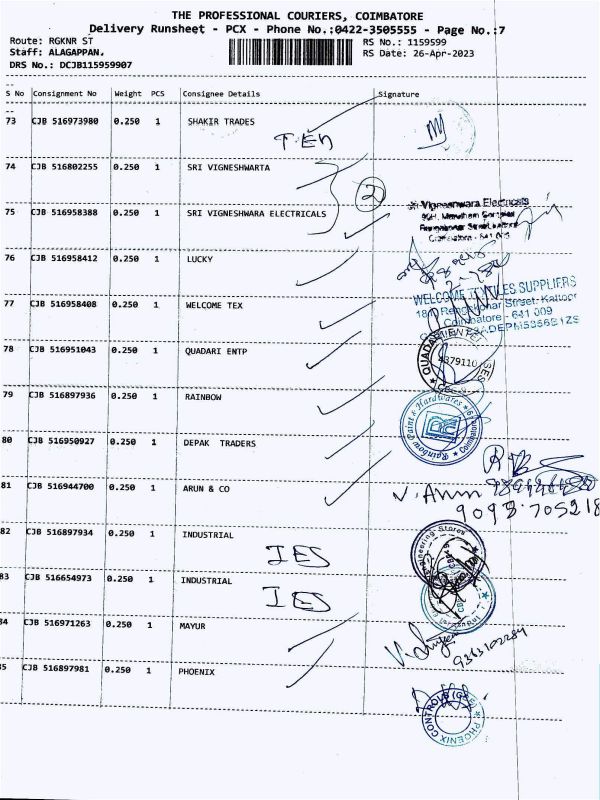 THE PROFESSIONAL COURIERS, COIMBATORE
Delivery Runsheet - PCX - Phone No.:0422-3505555 - Page No.:7
Route: RGKNR ST RS No.: 1159599
Staff: ALAGAPPAN. RS Date: 26-Apr-2023
DRS No.: DCJB115959907
S No Consignment No Weight PCS Consignee Details Signature
73 CJB 516973980 0.250 1 SHAKIR TRADES
74 CJB 516802255 0.250 1 SRI VIGNESHWARTA
2
Vigneshwara Electricals
75 CJB 516958388 0.250 1 SRI VIGNESHWARA ELECTRICALS
Coimbatore - 641 009
76 CJB 516958412 0.250 1 LUCKY
WELCOME TEXTILES SUPPLIERS
77 CJB 516958408 0.250 1 WELCOME TEX
Street, Kattoor
Coimbatore - 641 009
78 CJB 516951043 0.250 1 QUADARI ENTP
4379110
79 CJB 516897936 0.250 1 RAINBOW
Rainbow Paint & Hardwares
80 CJB 516950927 0.250 1 DEPAK TRADERS
81 CJB 516944700 0.250 1 ARUN & CO
V. Arun
9093705218
82 CJB 516897934 0.250 1 INDUSTRIAL
IES
Engineering Stores
83 CJB 516654973 0.250 1 INDUSTRIAL
IES
84 CJB 516971263 0.250 1 MAYUR
9363102284
85 CJB 516897981 0.250 1 PHOENIX
PHOENIX CONTROLS